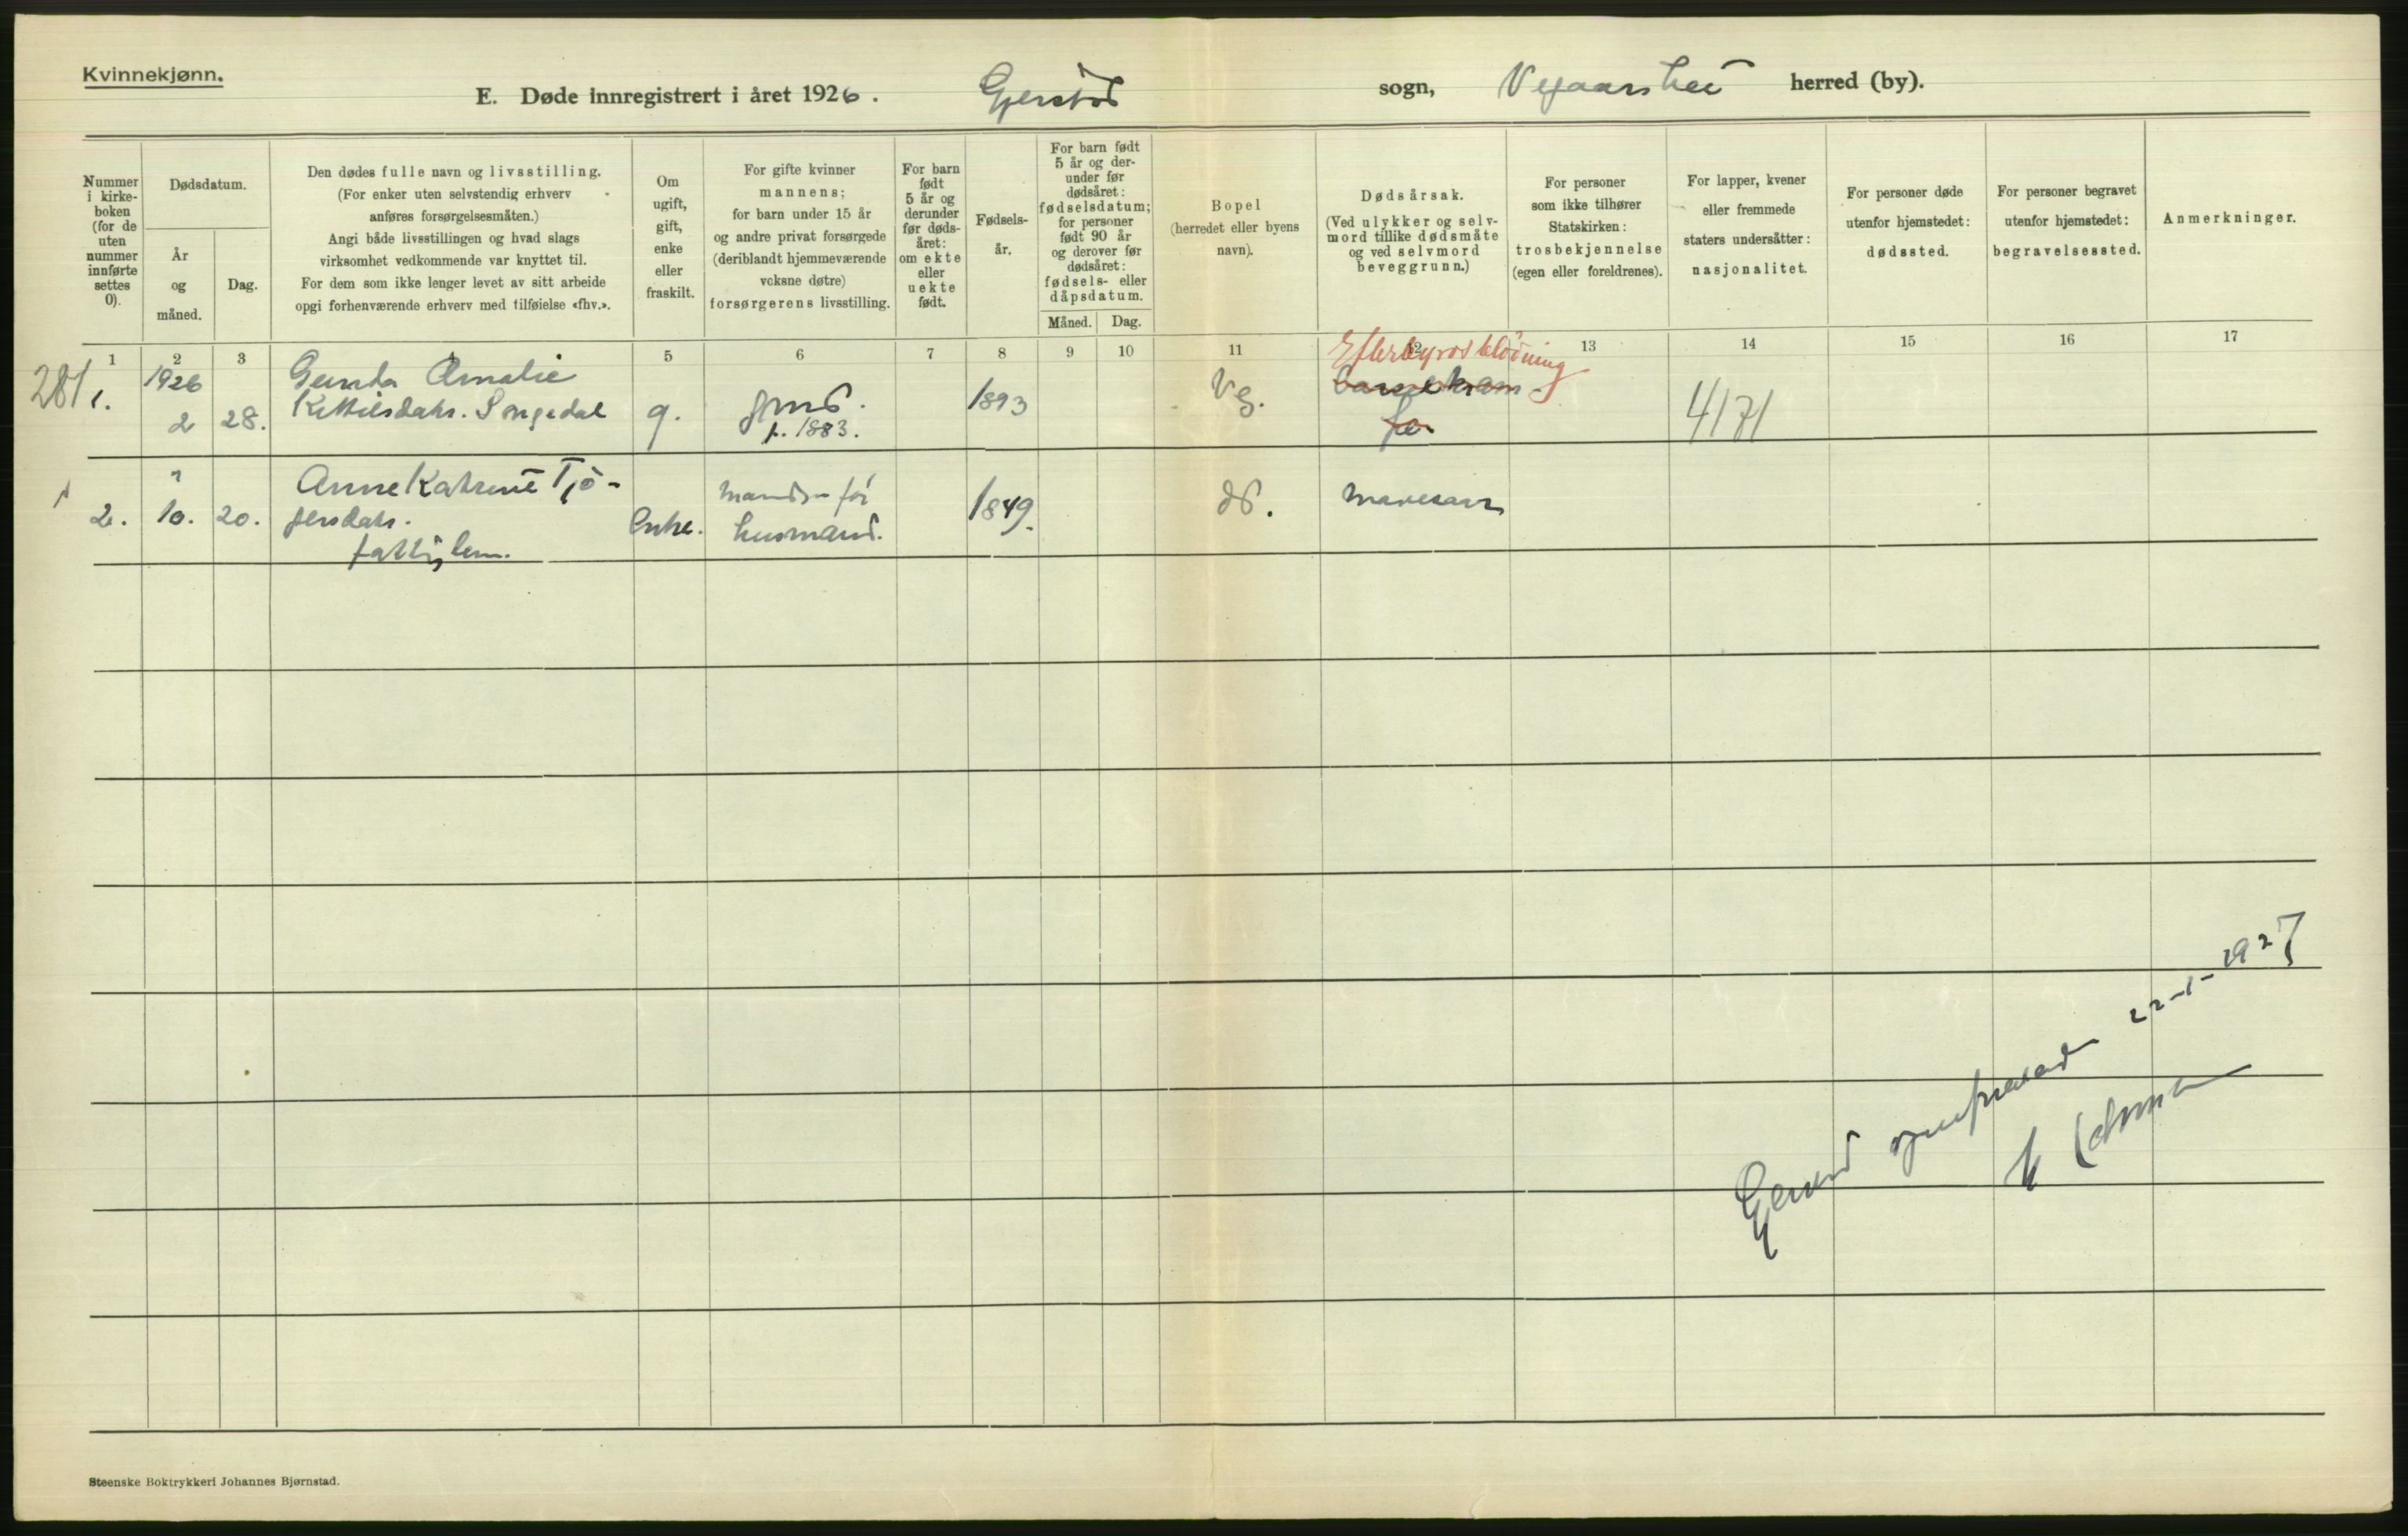 Kvinnekjønn.
E. Døde innregistrert i året 1926. Gjerstad sogn, Vegaarshei herred (by).
Nummer
i kirke-
boken
(for de
uten
nummer
innførte
settes
0).
Dødsdatum.
År
og
måned.
Dag.
Den dødes fulle navn og livsstilling.
(For enker uten selvstendig erhverv
anføres forsørgelsesmåten.)
Angi både livsstillingen og hvad slags
virksomhet vedkommende var knyttet til.
For dem som ikke lenger levet av sitt arbeide
opgi forhenværende erhverv med tilføielse «fhv.».
Om
ugift,
gift,
enke
eller
fraskilt.
For gifte kvinner
mannens;
for barn under 15 år
og andre privat forsørgede
(deriblandt hjemmeværende
voksne døtre)
forsørgerens livsstilling.
For barn
født
5 år og
derunder
før døds-
året:
om ekte
eller
uekte
født.
Fødsels-
år.
For barn født
5 år og der-
under før
dødsåret:
fødselsdatum;
for personer
født 90 år
og derover før
dødsåret:
fødsels- eller
dåpsdatum.
Måned. Dag.
Bopel
(herredet eller byens
navn).
Dødsårsak.
(Ved ulykker og selv-
mord tillike dødsmåte
og ved selvmord
beveggrunn.)
For personer
som ikke tilhører
Statskirken:
trosbekjennelse
(egen eller foreldrenes).
For lapper, kvener
eller fremmede
staters undersåtter:
nasjonalitet.
For personer døde
utenfor hjemstedet:
dødssted.
For personer begravet
utenfor hjemstedet:
begravelsessted.
Anmerkninger.
1 2 3 4 5 6 7 8 9 10 11 12 13 14 15 16 17
Efterbyrdsblödning
281 1. 1926 Gunda Amalie
2 28. Kittilsdatr. Songedal g. gmd. 1893 Vg. 4171
f. 1883.
" Anne Katrine Tjö-
2. 10. 20. gersdatr. Enke. husmand. 1849. do.
fattiglem.
22-1-1927
Gjerstad sogneprestembed
Steenske Boktrykkeri Johannes Bjørnstad.